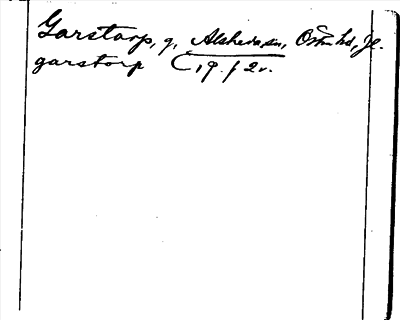 Garstorp, g, Alsheda sn, Östra hd, Jl.
garstorp C 19 f 2v.